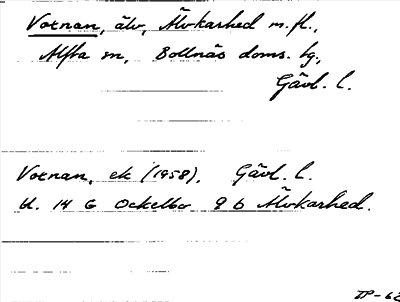 Voxnan, älv, Älvkarhed m.fl.,
Alfta sn, Bollnäs doms. hg.,
Gävl. l.
Voxnan, ek (1958), Gävl. l.
bl. 14 G Ockelbo 9 b Älvkarhed.